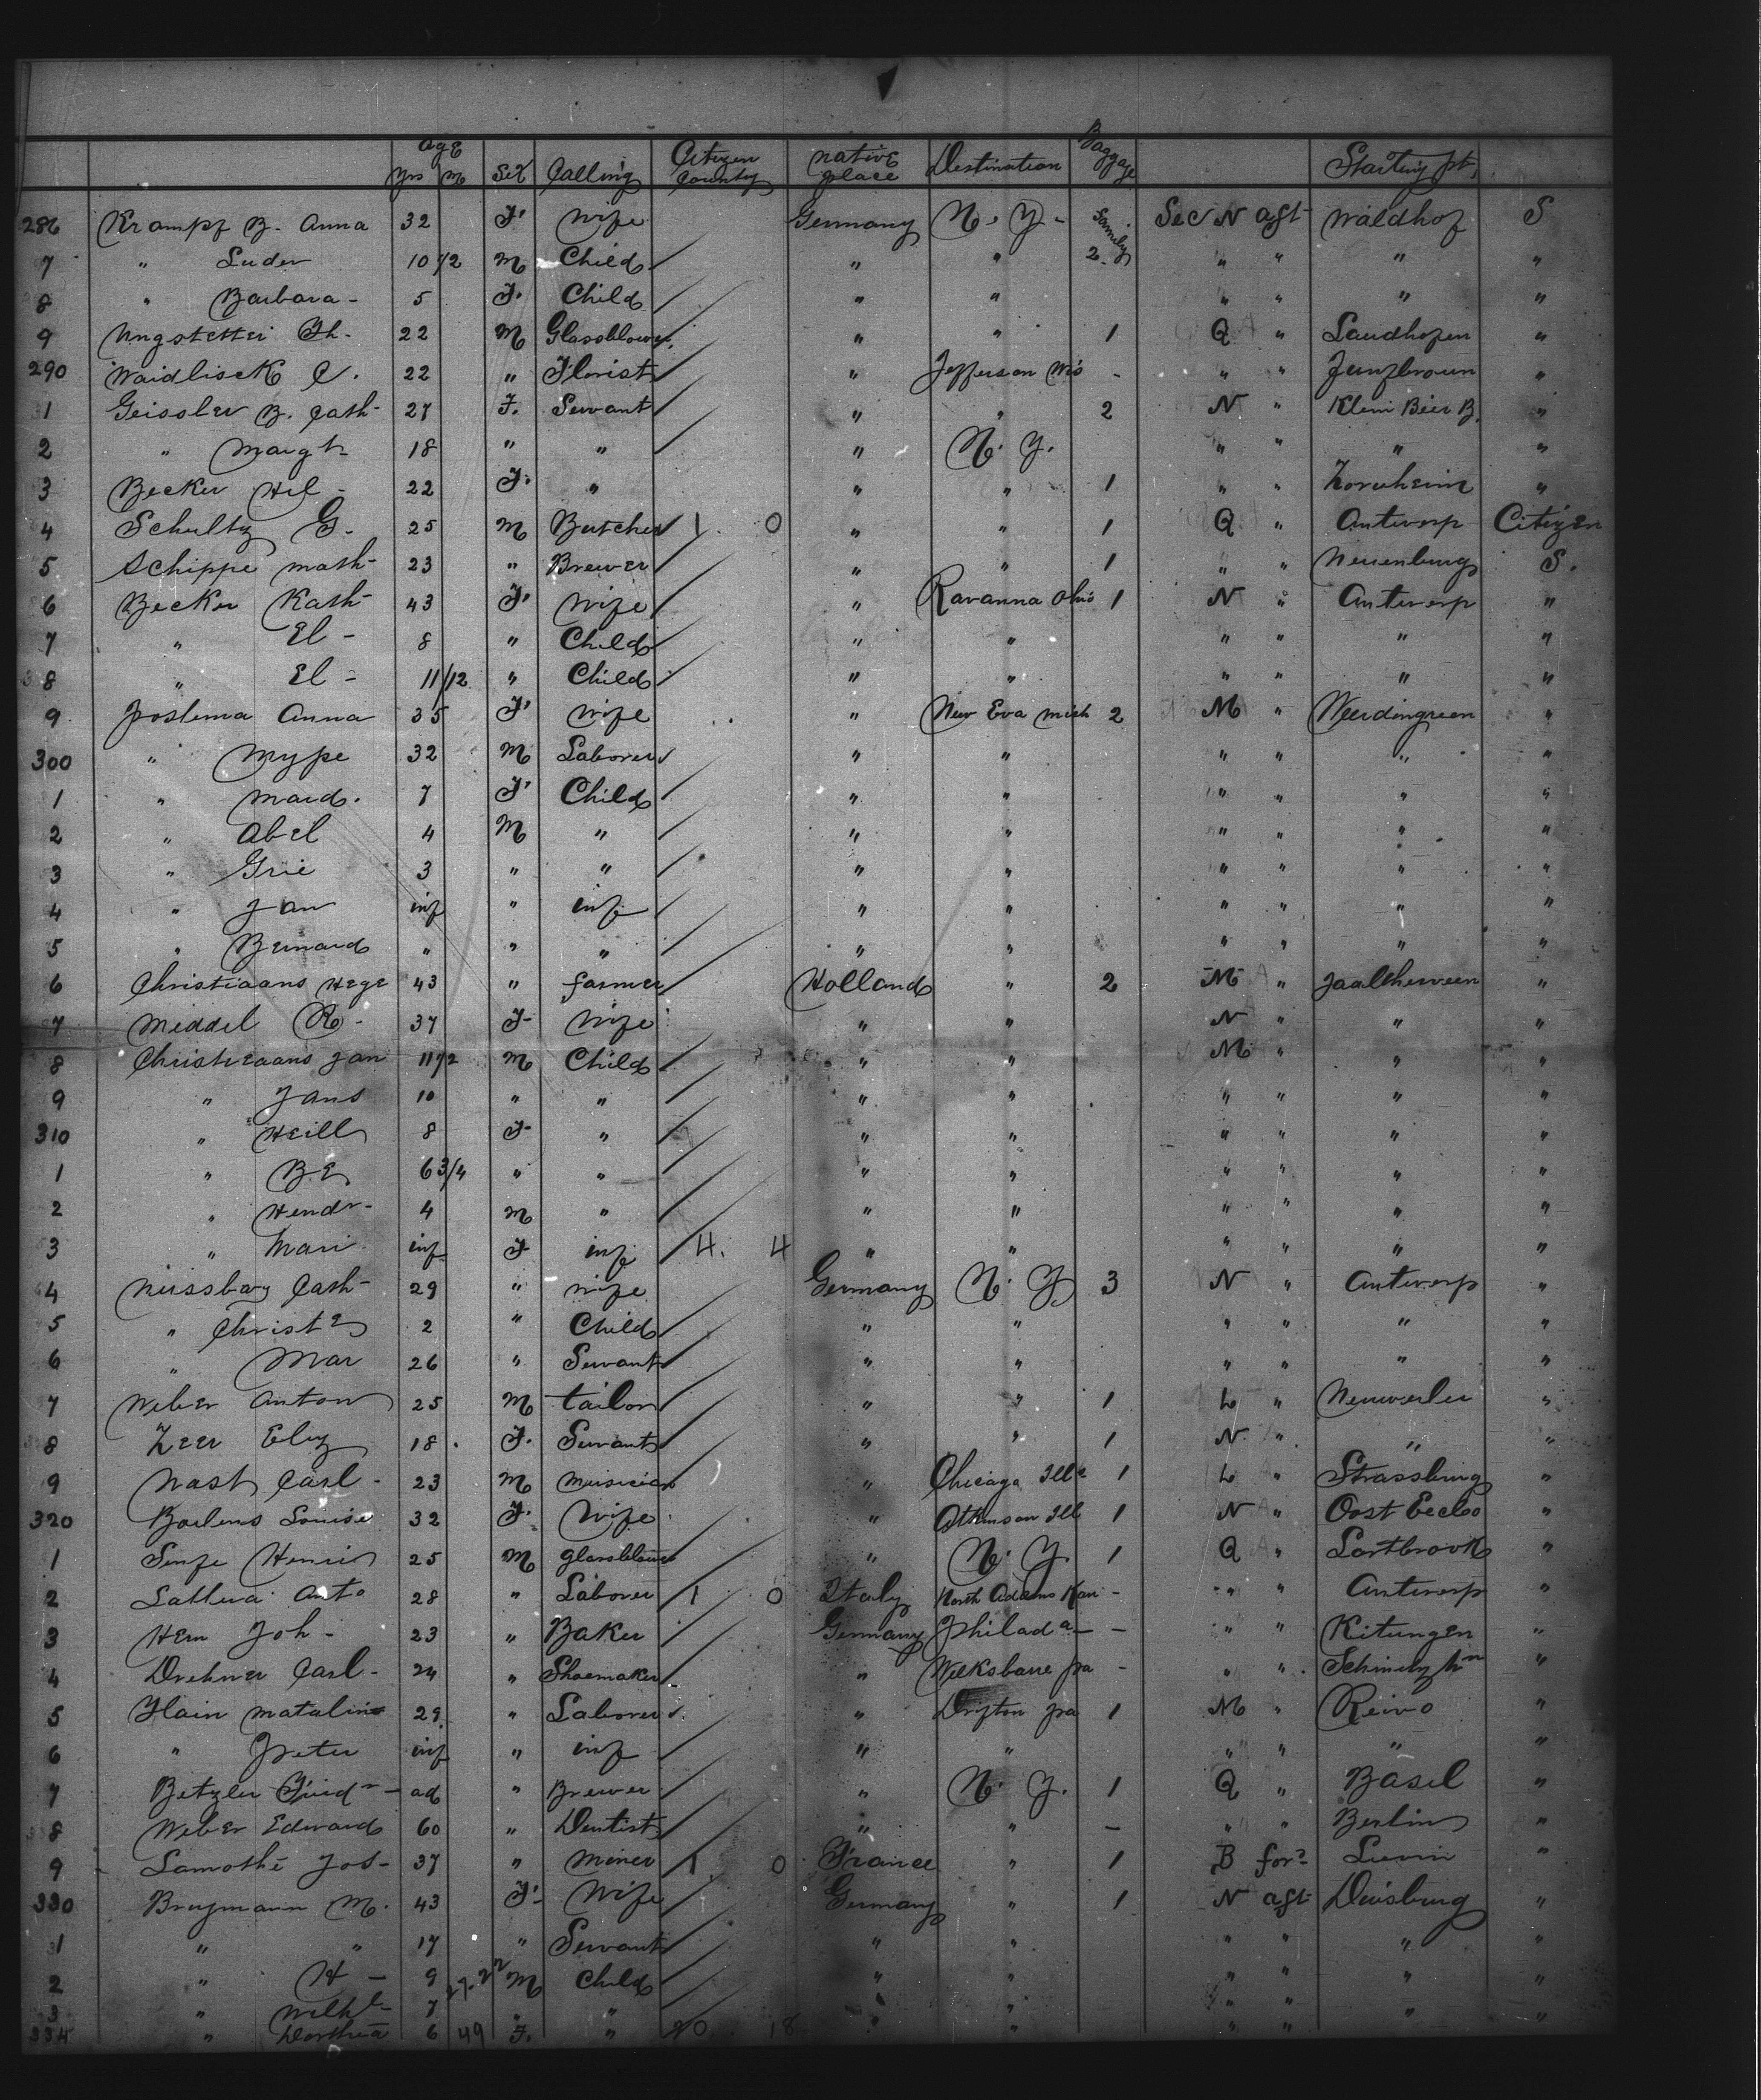 Age yrs M Sex Calling Citizen County native place Destination Baggage Starting pt
286 Krampf B. Anna 32 F. Wife Germany N. Y. Family 2 Sec N aft Waldhof S
7 " Luder 10 1/2 M Child " " " " " "
8 " Barbara 5 F. Child " " " " " "
9 Ungstetter Th. 22 M Glassblower " " 1 Q " Sandhofen "
290 Waidlisck C. 22 " Florist " Jefferson Wis - " " "
1 Geissler B. Cath- 27 F. Servant " " 2 N " Klein Bier B. "
2 " Margt 18 " " " N. Y. " " " "
3 Becker Hel- 22 F. " " " 1 " " Zornheim "
4 Schultz G. 25 M Butcher 1 0 " " 1 Q " Antwerp Citizen
5 Schippe Math- 23 " Brewer " " 1 " " Neuenburg S.
6 Becker Kath- 43 F. Wife " Ravanna Ohio 1 N " Antwerp "
7 " El- 8 " Child " " " " " "
8 " El- 11/12 " Child " " " " " "
9 Postema Anna 35 F. Wife " New Era Mich 2 M " "
300 " Mype 32 M Laborer " " " " " "
1 " Maid. 7 F. Child " " " " " "
2 " Abel 4 M " " " " " " "
3 " Grie 3 " " " " " " " "
4 " Jan inf " inf " " " " " "
5 " Bernard " " " " " " " " "
6 Christiaans Hege 43 " farmer Holland " 2 M " "
7 Meddel R- 37 F- Wife " " N " " "
8 Christiaans Jan 11 1/2 M Child " " M " " "
9 " Jans 10 " " " " " " " "
310 " Heill 8 F- " " " " " " "
1 " B E 6 3/4 " " " " " " " "
2 " Hendr- 4 M " " " " " " "
3 " Mari inf F inf 4. 4 " " " " " "
4 Cath- 29 " wife Germany N. Y. 3 N " Antwerp "
5 " 2 " Child " " " " " "
6 " Mar 26 " Servant " " " " " "
7 Weber Anton 25 M tailor " " 1 L " "
8 Zeer Eliz 18. F. Servant " " 1 N " " "
9 Nast Carl- 23 M musician " Chicago Ills 1 L " Strassburg "
320 Louise 32 F. Wife " Atkinson Ill 1 N " Oost Eecloo "
1 Henri 25 M glassblower " N. Y. 1 Q " "
2 Anto 28 " Laborer 1 0 Italy North Adams - " " Antwerp "
3 Hern Joh- 23 " Baker Germany Philada - " " Kitungen "
4 Drehner Carl- 24 " Shoemaker " Wilksbarre pa - " " "
5 Hain 29 " Laborer " Drifton pa 1 M " "
6 " Peter inf " inf " " " " " "
7 Betzler ad " Brewer " N. Y. 1 Q " Basel "
8 Weber Edward 60 " Dentist " " - " " Berlin "
9 Lamothe Jos- 37 " Miner 1 0 France " 1 B for? "
330 Brugmann M. 43 F- Wife Germany " 1 N aft Duisburg "
1 " " 17 " Servant " " " " " "
2 " H- 9 27-22 M Child " " " " " "
3 " Wilhl- 7 " " " " " " " "
334 " Dorthea 6 49 F. " 20 18 " " " " " "